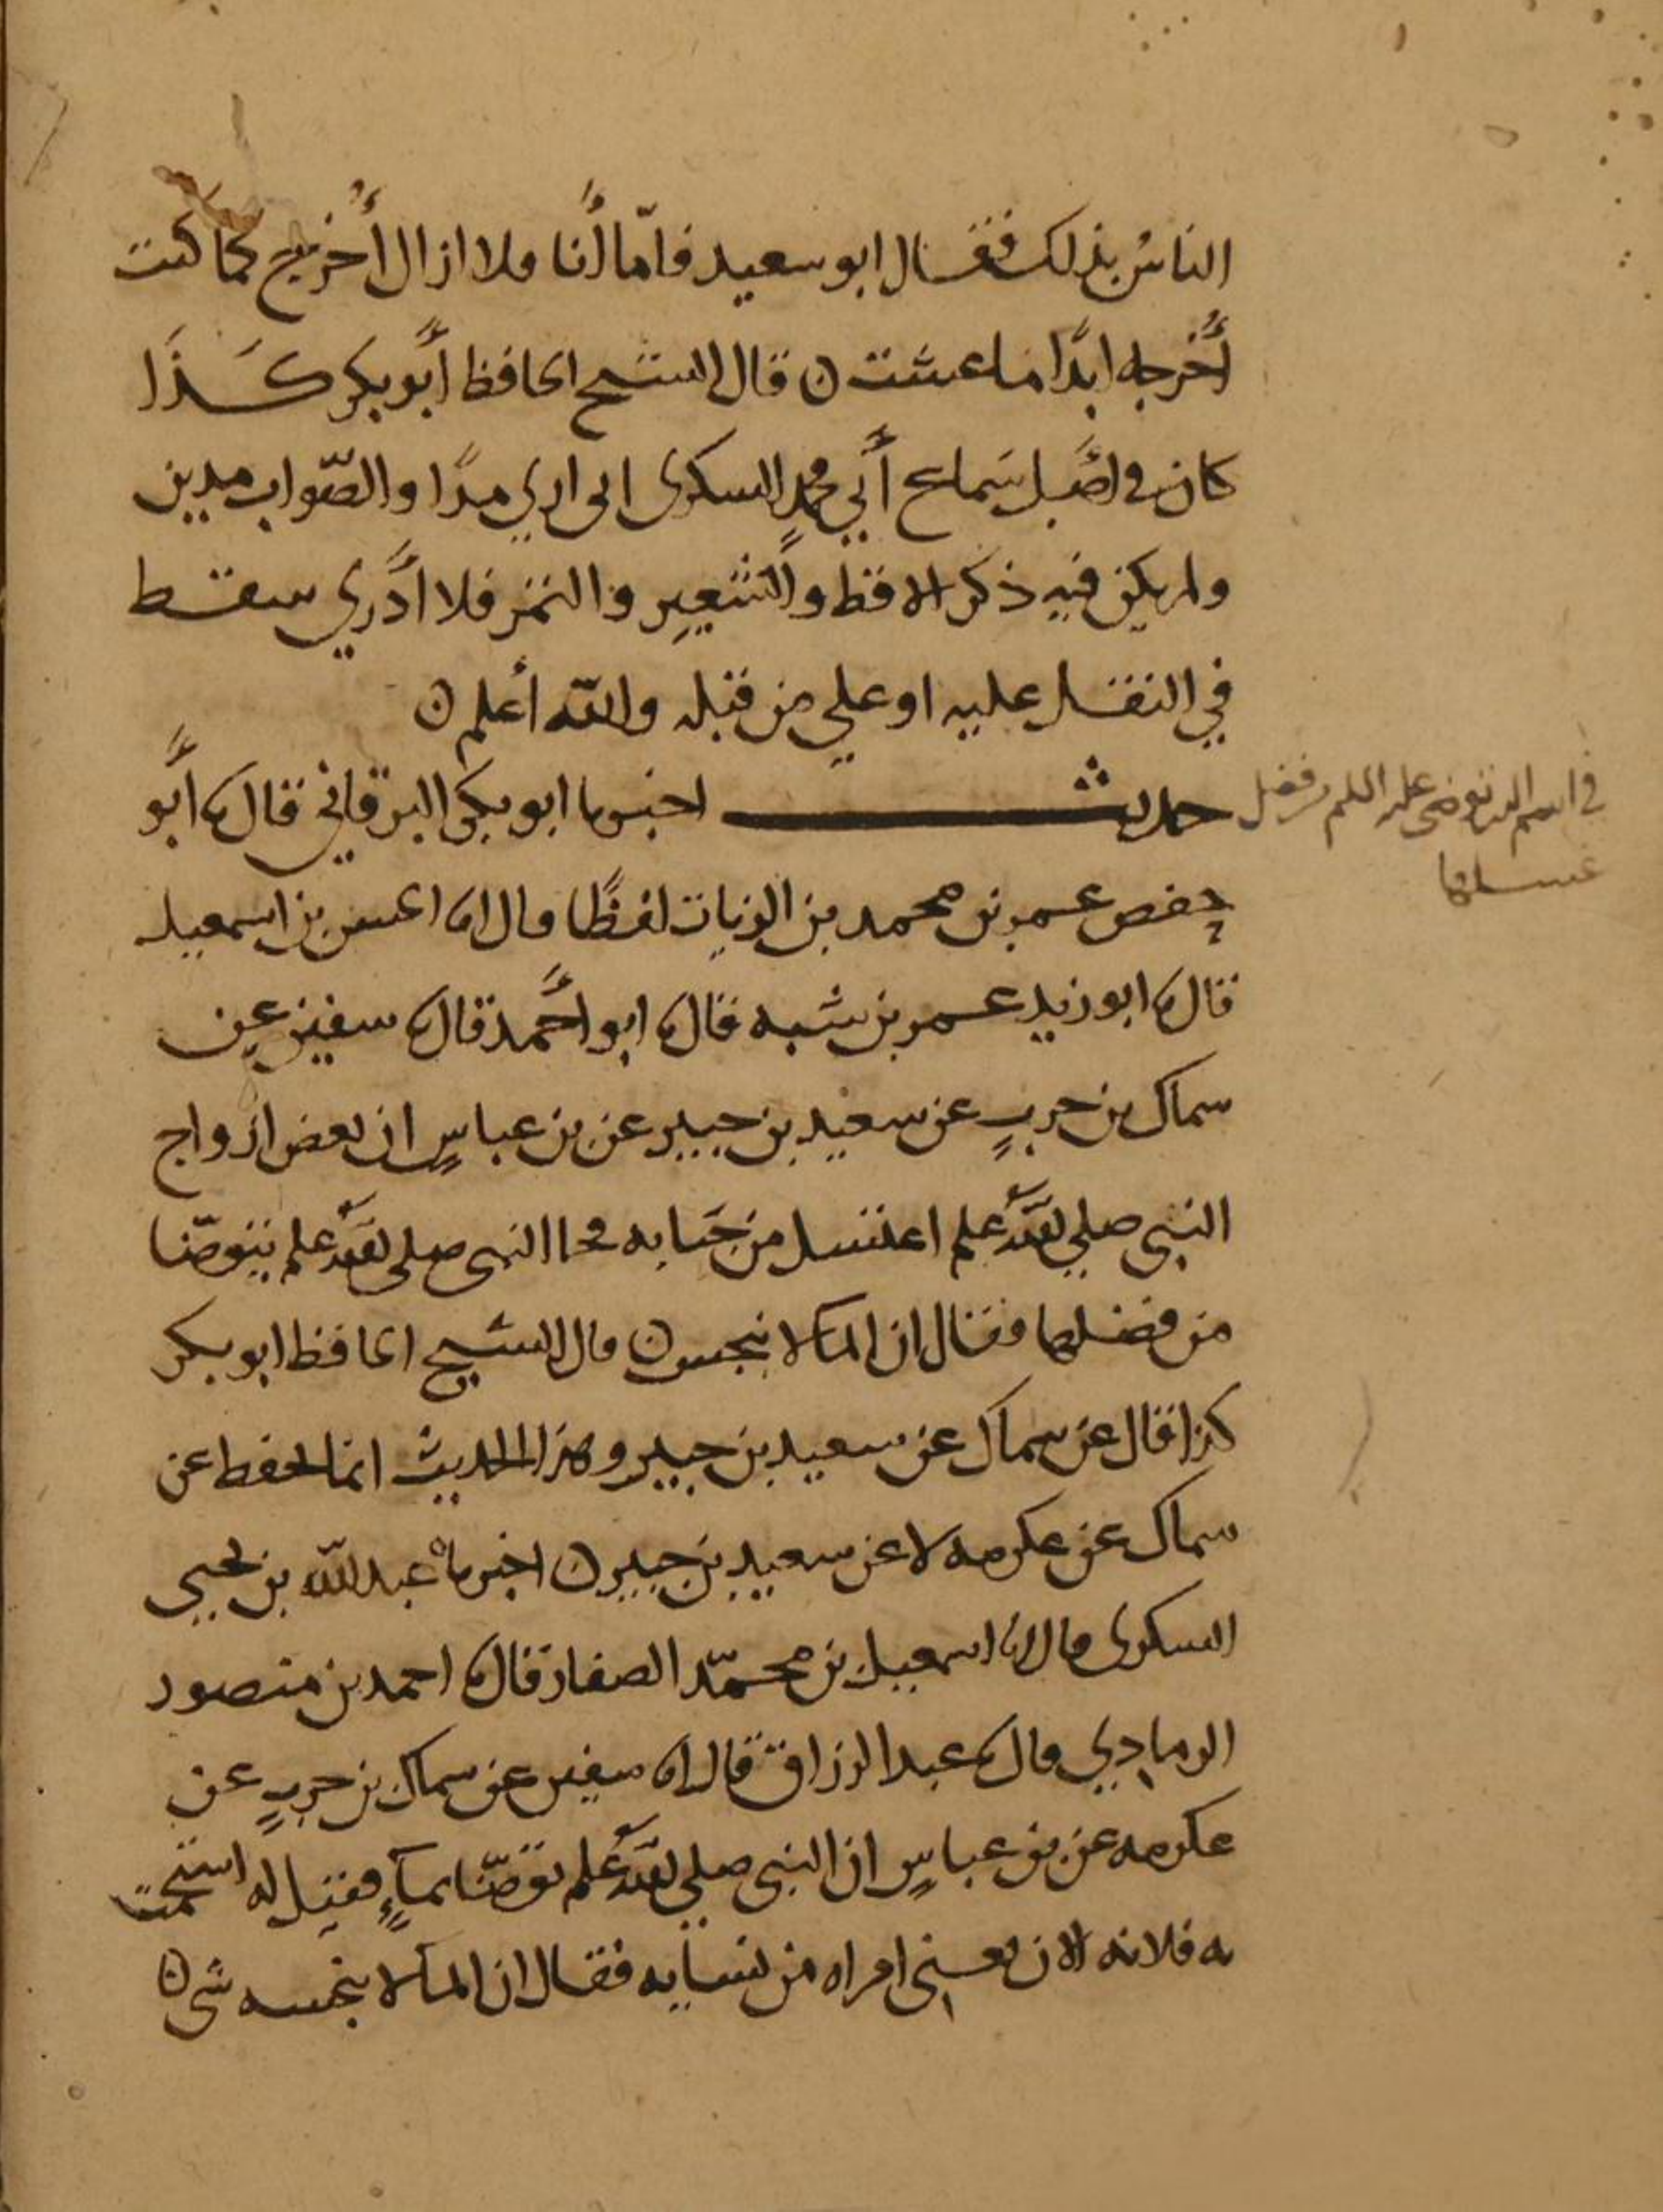 الناسُ بذلك فقال ابو سعيد فامّا أنا فلا ازال أُخرج كما كنت
أُخرجه ابدًا ما عشت ن قال الشيخ الحافظ أبو بكر كذا
كان في اصل سماع أبي محمدٍ السكرى انى اري مدًا والصّواب مدين
ولم يكن فيه ذكر الاقط والشعير والتمر فلا أدري سقط
في النقل عليه او علي من قبله والله أعلم ن
حديث اخبرنا ابو بكر البرقاني قال نا أبو
حفص عمر بن محمد بن الزيات لفظًا قال انا الحسن بن اسمعيل
قال نا ابو زيد عمر بن شبه قال نا ابو أحمد قال نا سفين عن
سماك بن حربٍ عن سعيد بن جبير عن بن عباسٍ ان بعض ازواج
النبي صلي الله عليه وسلم اغتسل من جنابه فجا النبي صلى الله عليه وسلم يتوضّا
من فضلها فقال ان الما لا ينجس ن قال الشيخ الحافظ ابو بكر
كذا قال عن سماك عن سعيد بن جبير وهذا الحديث انما يحفظ عن
سماك عن عكرمه لا عن سعيد بن جبير ن اخبرناه عبد الله بن يحيى
السكرى قال انا اسمعيل بن محمّد الصفار قال نا احمد بن منصور
الرمادي قال نا عبد الرزاق قال انا سفين عن سماك بن حربٍ عن
عكرمه عن بن عباسٍ ان النبي صلي الله عليه وسلم توضّا بمآءٍ فقيل له استحمت
به فلانه الان يعني امراه من نسايه فقال ان الما لا ينجسه شي ن
في اسم التي توضى عليه السلم من فضل
غسلها